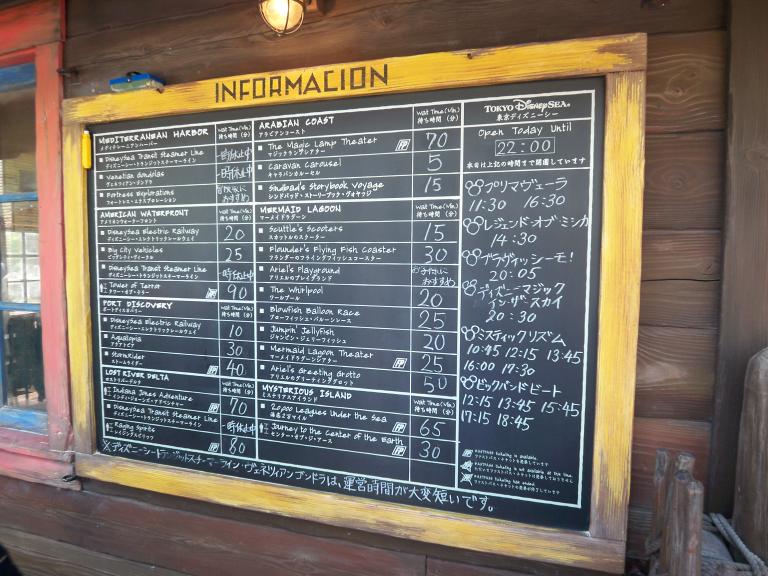 INFORMACION
MEDITERRANEAN HARBOR
メディテレーニアンハーバー
Wait Time(Min.)
待ち時間（分）
DisneySea Transit Steamer Line
ディズニーシー・トランジットスチーマーライン
一時休止中
Venetian Gondolas
ヴェネツィアン・ゴンドラ
一時休止中
Fortress Explorations
フォートレス・エクスプロレーション
冒険後に
おすすめ
AMERICAN WATERFRONT
アメリカンウォーターフロント
Wait Time(Min.)
待ち時間（分）
DisneySea Electric Railway
ディズニーシー・エレクトリックレールウェイ
20
Big City Vehicles
ビッグシティ・ヴィークル
25
DisneySea Transit Steamer Line
ディズニーシー・トランジットスチーマーライン
一時休止中
Tower of Terror
タワー・オブ・テラー
FP
90
PORT DISCOVERY
ポートディスカバリー
Wait Time(Min.)
待ち時間（分）
DisneySea Electric Railway
ディズニーシー・エレクトリックレールウェイ
10
Aquatopia
アクアトピア
30
StormRider
ストームライダー
FP
40
LOST RIVER DELTA
ロストリバーデルタ
Wait Time(Min.)
待ち時間（分）
Indiana Jones Adventure
インディ・ジョーンズ・アドベンチャー
FP
70
DisneySea Transit Steamer Line
ディズニーシー・トランジットスチーマーライン
一時休止中
Raging Spirits
レイジングスピリッツ
FP
80
ARABIAN COAST
アラビアンコースト
Wait Time(Min.)
待ち時間（分）
The Magic Lamp Theater
マジックランプシアター
FP
70
Caravan Carousel
キャラバンカルーセル
5
Sindbad's Storybook Voyage
シンドバッド・ストーリーブック・ヴォヤッジ
15
MERMAID LAGOON
マーメイドラグーン
Wait Time(Min.)
待ち時間（分）
Scuttle's Scooters
スカットルのスクーター
15
Flounder's Flying Fish Coaster
フランダーのフライングフィッシュコースター
30
Ariel's Playground
アリエルのプレイグラウンド
お子様に
おすすめ
The Whirlpool
ワールプール
20
Blowfish Balloon Race
ブローフィッシュ・バルーンレース
25
Jumpin' Jellyfish
ジャンピン・ジェリーフィッシュ
20
Mermaid Lagoon Theater
マーメイドラグーンシアター
FP
25
Ariel's Greeting Grotto
アリエルのグリーティンググロット
50
MYSTERIOUS ISLAND
ミステリアスアイランド
Wait Time(Min.)
待ち時間（分）
20,000 Leagues Under the Sea
海底2万マイル
FP
65
Journey to the Center of the Earth
センター・オブ・ジ・アース
FP
30
TOKYO DISNEYSEA®
東京ディズニーシー
Open Today Until
22:00
本日は上記の時間まで開園しています
プリマヴェーラ
11:30 16:30
レジェンド・オブ・ミシカ
14:30
ブラヴィッシーモ!
20:05
ディズニーマジック
インザスカイ
20:30
ミスティックリズム
10:45 12:15 13:45
16:00 17:30
ビッグバンドビート
12:15 13:45 15:45
17:15 18:45
※ディズニーシートランジットスチーマーライン・ヴェネツィアンゴンドラは、運営時間が大変短いです。